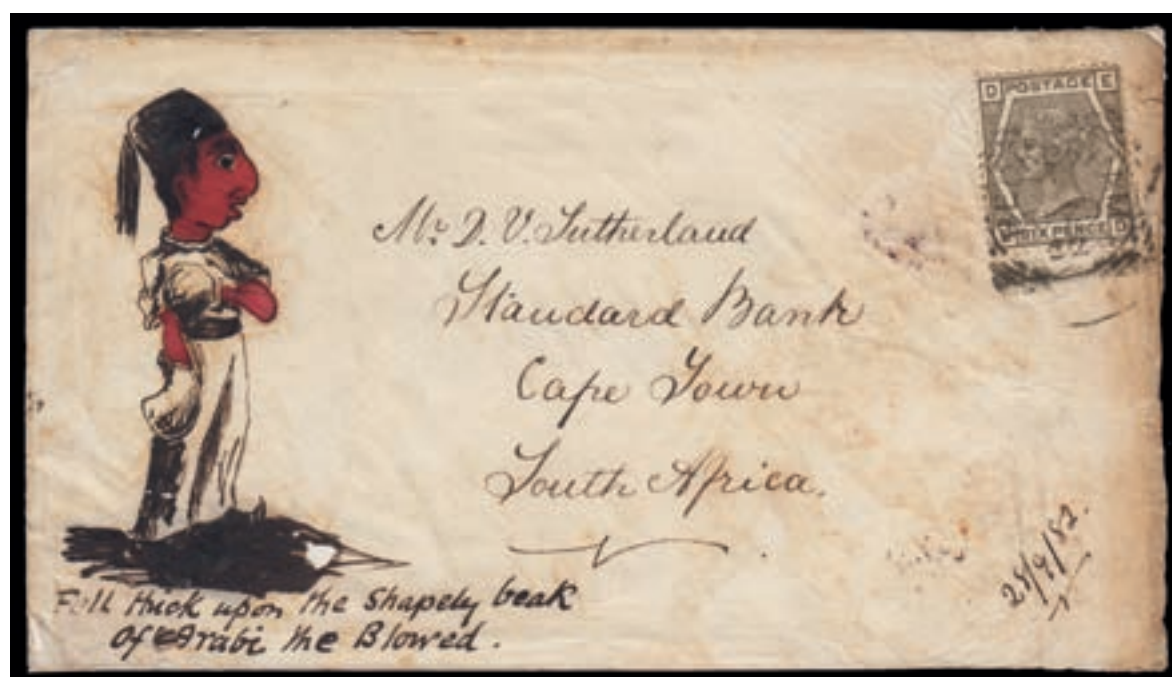 D POSTAGE E
SIX PENCE D
Mr D. V. Sutherland
Standard Bank
Cape Town
South Africa.
Fell thick upon the Shapely beak
Of Arabi the Blowed.